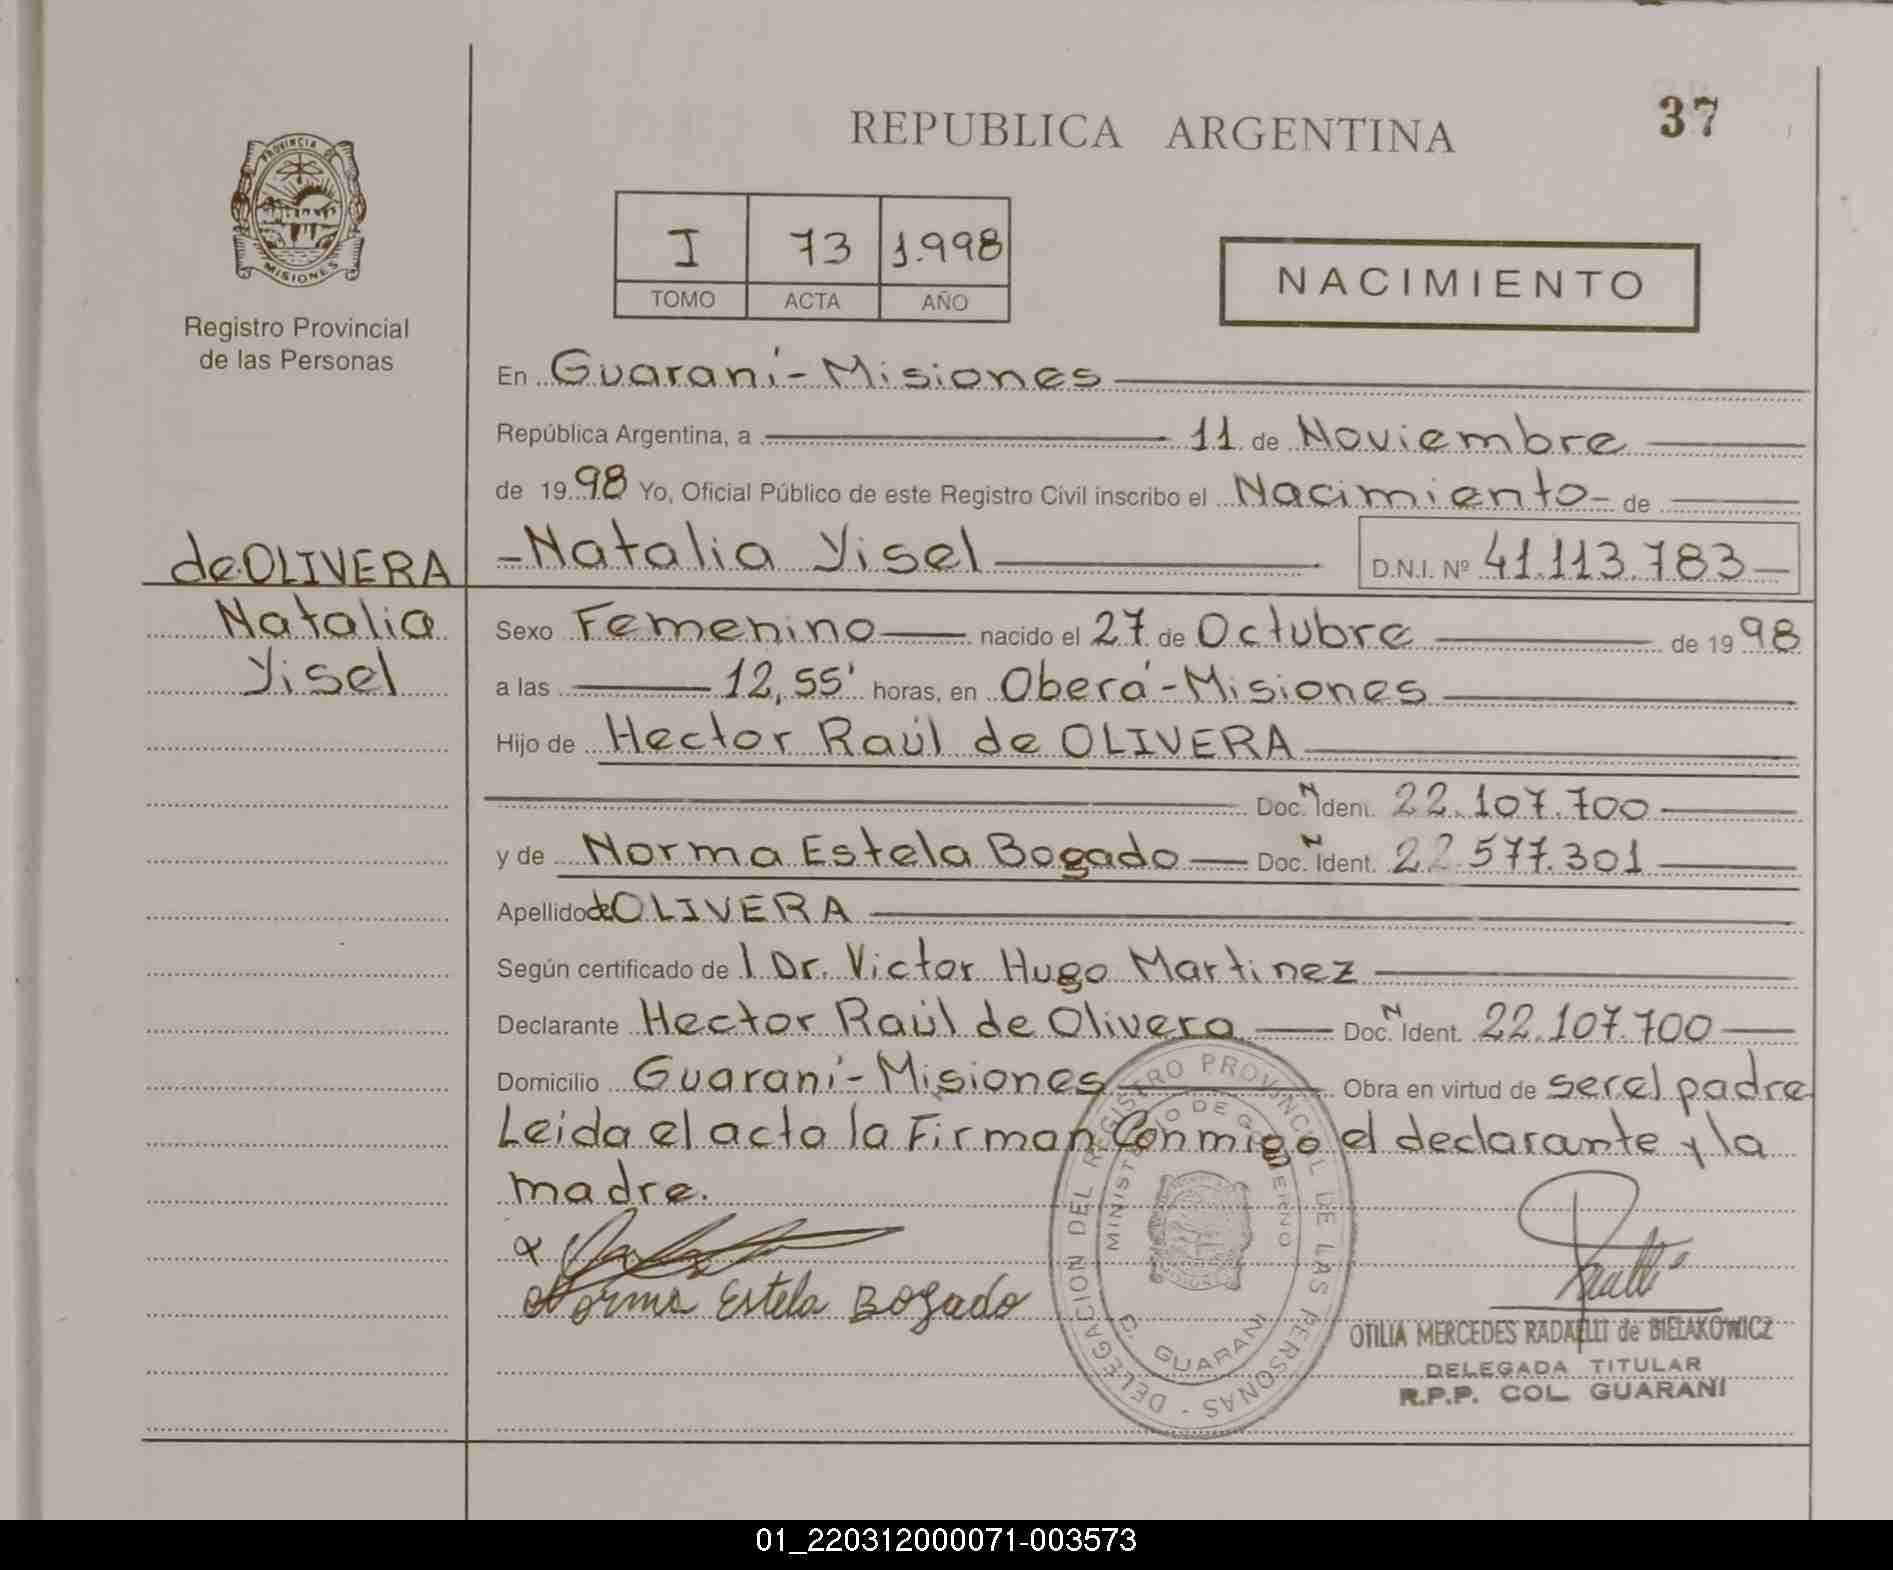 REPUBLICA ARGENTINA
37
PROVINCIA DE
MISIONES
Registro Provincial
de las Personas
I 73 1.998
TOMO ACTA AÑO
NACIMIENTO
En Guaraní - Misiones
República Argentina, a 11 de Noviembre
de 1998 Yo, Oficial Público de este Registro Civil inscribo el Nacimiento - de
de OLIVERA
Natalia
Yisel
- Natalia Yisel D.N.I. Nº 41.113.783
Sexo Femenino nacido el 27 de Octubre de 1998
a las 12,55' horas, en Oberá - Misiones
Hijo de Hector Raúl de OLIVERA
Doc. N Ident. 22.107.700
y de Norma Estela Bogado Doc. N Ident. 22.577.301
Apellido de OLIVERA
Según certificado de l Dr. Victor Hugo Martinez
Declarante Hector Raúl de Olivera Doc. N Ident. 22.107.700
Domicilio Guaraní - Misiones Obra en virtud de ser el padre
Leida el acta la Firman Conmigo el declarante y la
madre.
Norma Estela Bogado
DELEGACION DEL REGISTRO PROVINCIAL DE LAS PERSONAS -
MINISTERIO DE GOBIERNO
C. GUARANI
OTILIA MERCEDES RADAELLI de BIELAKOWICZ
DELEGADA TITULAR
R.P.P. COL. GUARANI
01_220312000071-003573